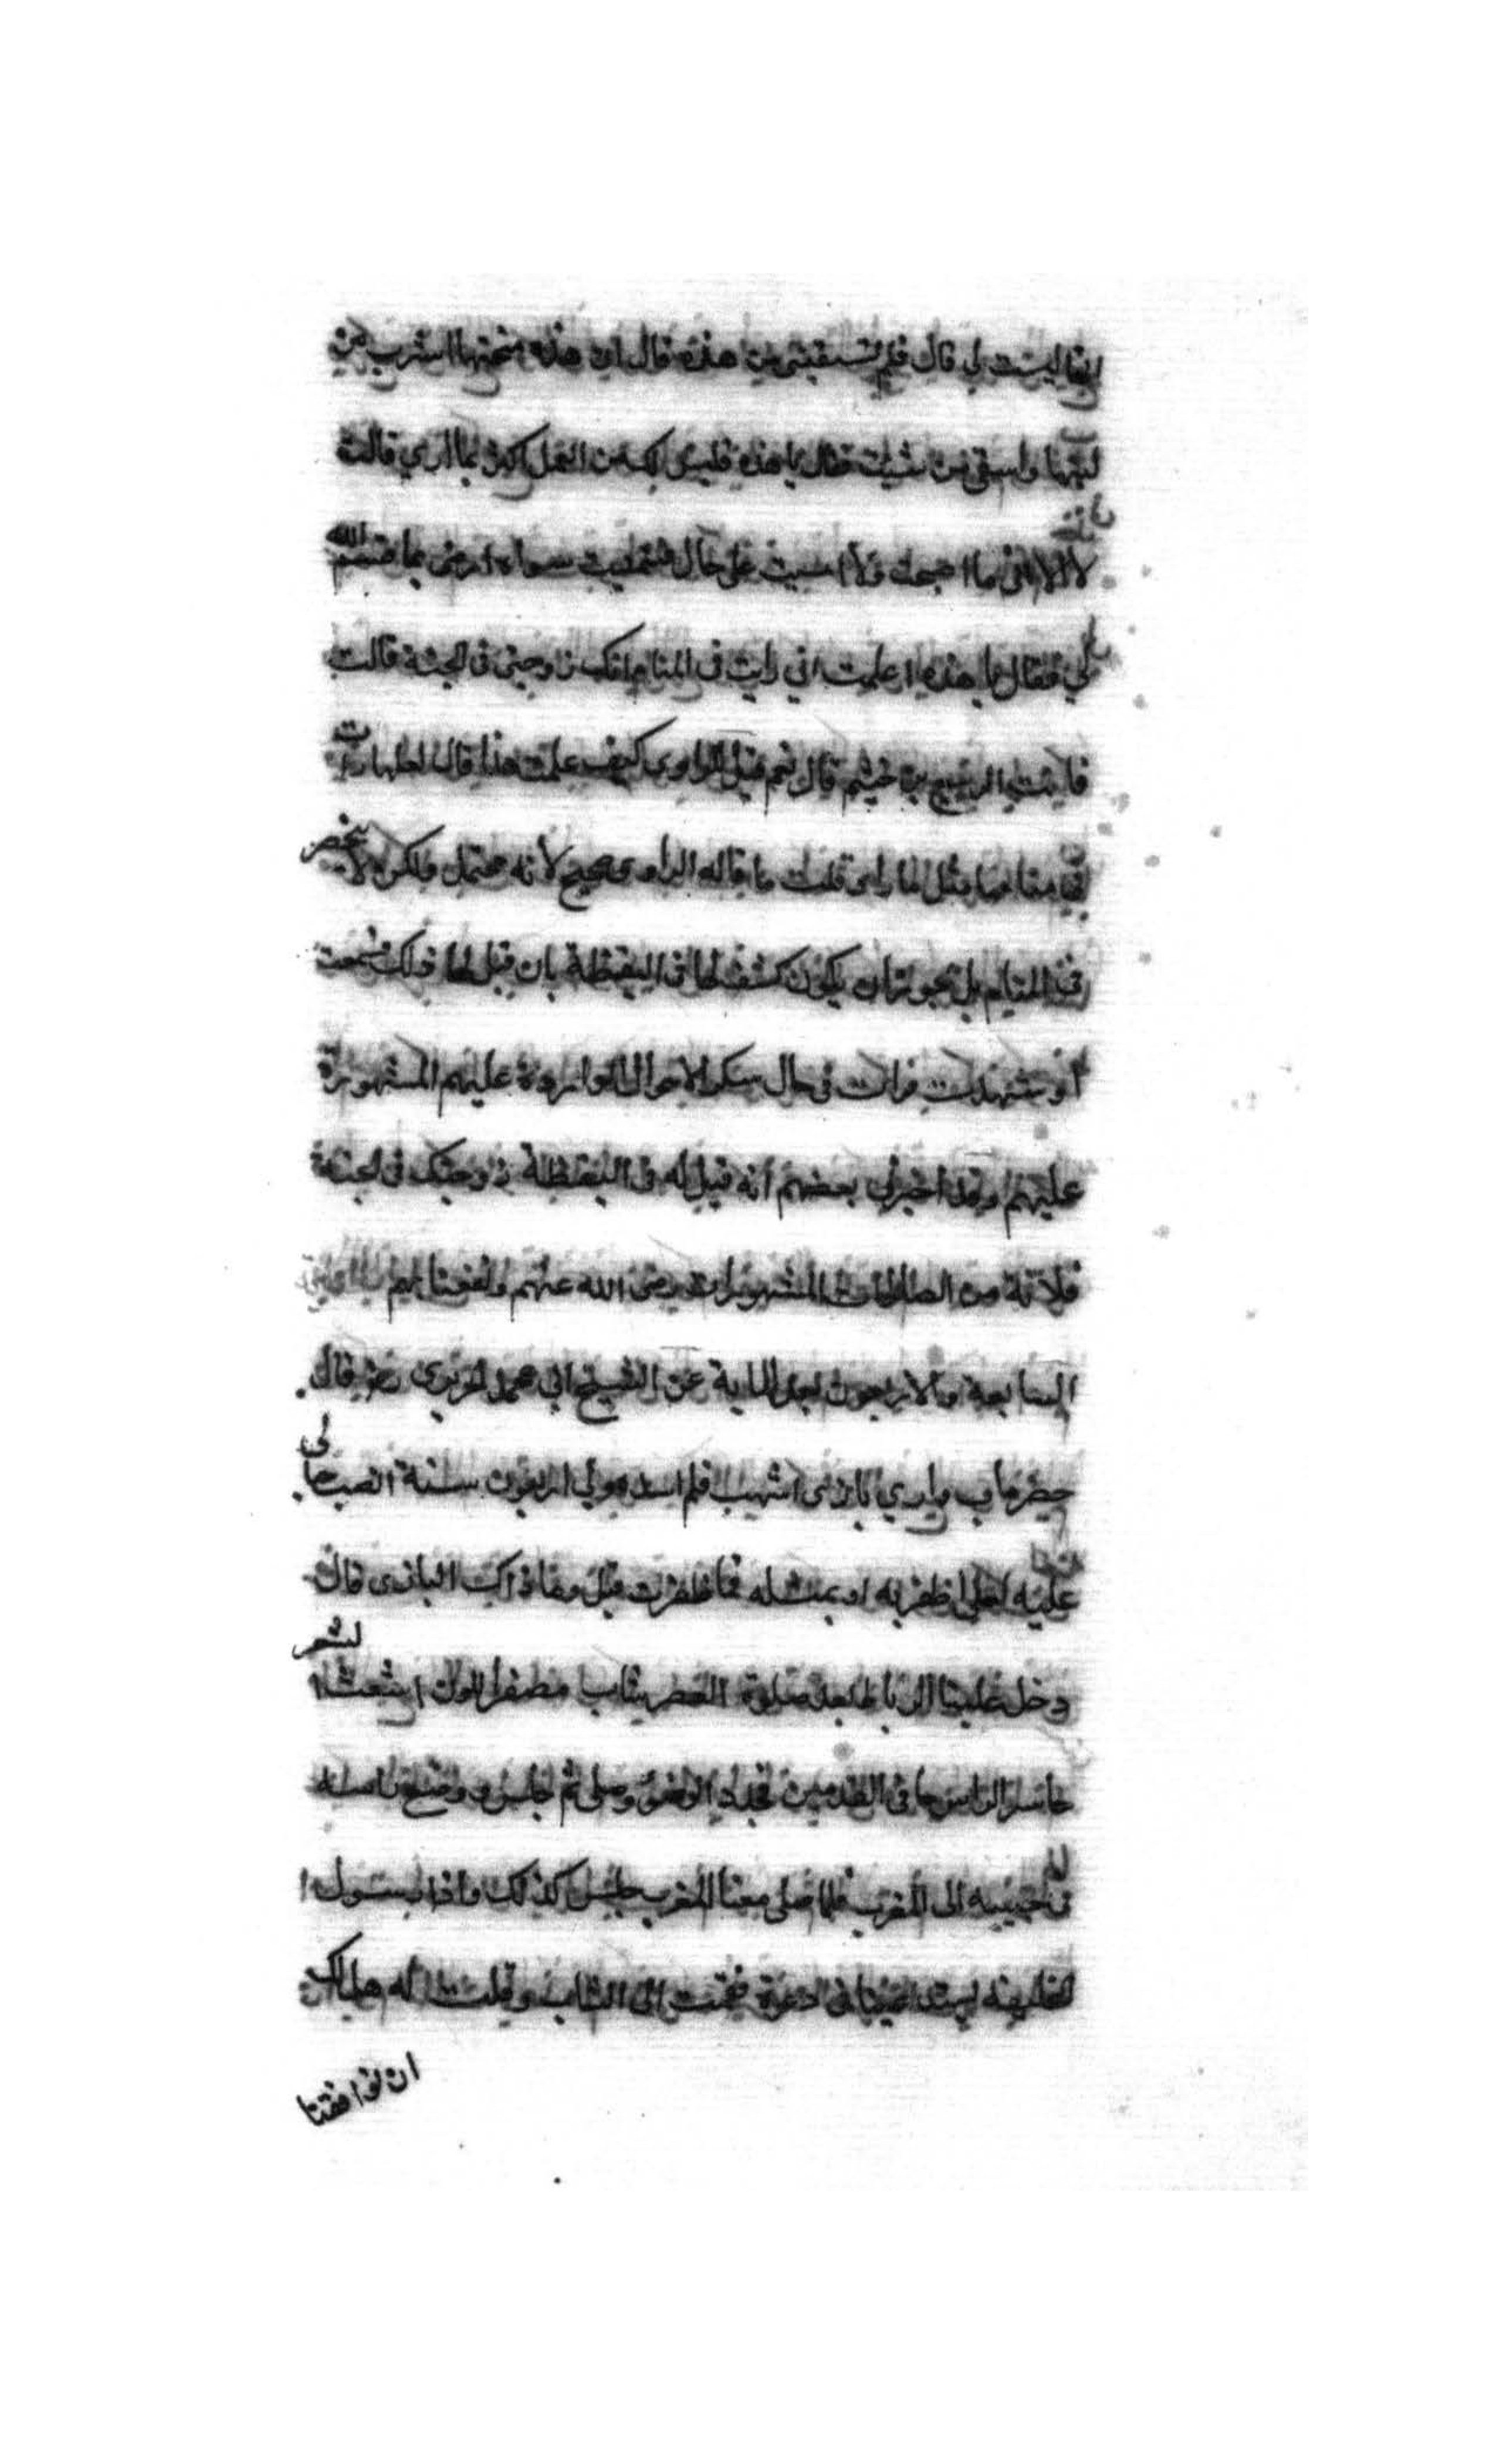 انها ليست لي قال فلم تسقيني من هذه قال ان هذه منحتها اشرب من
لبنها واسقي من شيت فقال يا هذه فليس لك من العمل اكثر مما اري قالت
لا الا انني ما اصبحت ولا امسيت على حال فتمنيت سواه ارضى بما قسم الله
لي فقال يا هذه اعلمت اني رايت في المنام انك زوجتي في الجنة قالت
فانت الربيع بن خيثم قال نعم قيل للراوي كيف علمت هذا قال لعلها رات
في منامها مثل ما راى قلت ما قاله الراوي صحيح لانه محتمل ولكن لا ينحصر
في المنام بل يجوز ان يكون كشف لها في اليقظة بان قيل لها ذلك فسمعت
او شهدت فرات في حال سكر الاحوال الواردة عليهم المشهورة
عليهم وقد اخبرني بعضهم انه قيل له في اليقظة زوجتك في الجنة
فلانة من الصالحات المشهورات رضي الله عنهم ونفعنا بهم
السابعة والاربعون بعد الماية عن الشيخ ابي محمد الحريري رضه قال
حضر ما ب داري بازي اشهب فلم اصده ولي اربعون سنة انصب حبا لي
عليه لعلي اظفر به او بمثله فما ظفرت قيل وما ذاك البازي قال
دخل علينا الرباط بعد صلوة العصر شاب مصفر اللون اشعث الشعر
حاسر الراس حافي القدمين فجدد الوضوء وصلى ثم جلس ووضع راسه
في جيبه الى المغرب فلما صلى معنا المغرب جلس كذلك واذا برسول ا
لخليفة يستدعينا في دعوة فقمت الى الشاب وقلت له هل لك
ان توافقنا